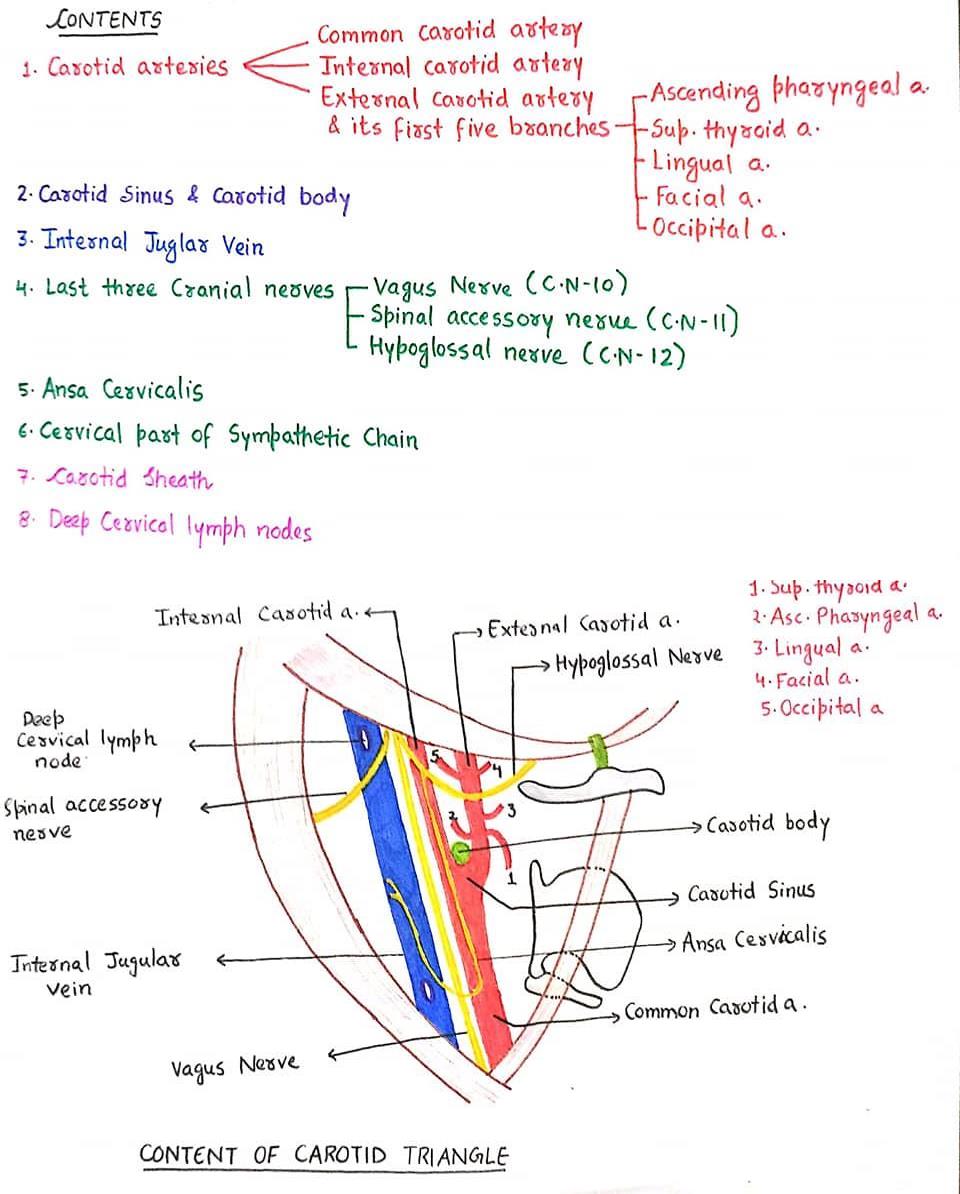 CONTENTS
1. Carotid arteries
Common carotid artery
Internal carotid artery
External carotid artery
& its first five branches
Ascending pharyngeal a.
Sup. thyroid a.
Lingual a.
Facial a.
Occipital a.
2. Carotid Sinus & Carotid body
3. Internal Juglar Vein
4. Last three Cranial nerves
Vagus Nerve (C.N-10)
Spinal accessory nerve (C.N-11)
Hypoglossal nerve (C.N-12)
5. Ansa Cervicalis
6. Cervical part of Sympathetic Chain
7. Carotid Sheath
8. Deep Cervical lymph nodes
Internal Carotid a.
External Carotid a.
Hypoglossal Nerve
1. Sup. thyroid a.
2. Asc. Pharyngeal a.
3. Lingual a.
4. Facial a.
5. Occipital a
Deep
Cervical lymph
node
Spinal accessory
nerve
5
4
2
3
1
Carotid body
Carotid Sinus
Ansa Cervicalis
Internal Jugular
vein
Common Carotid a.
Vagus Nerve
CONTENT OF CAROTID TRIANGLE